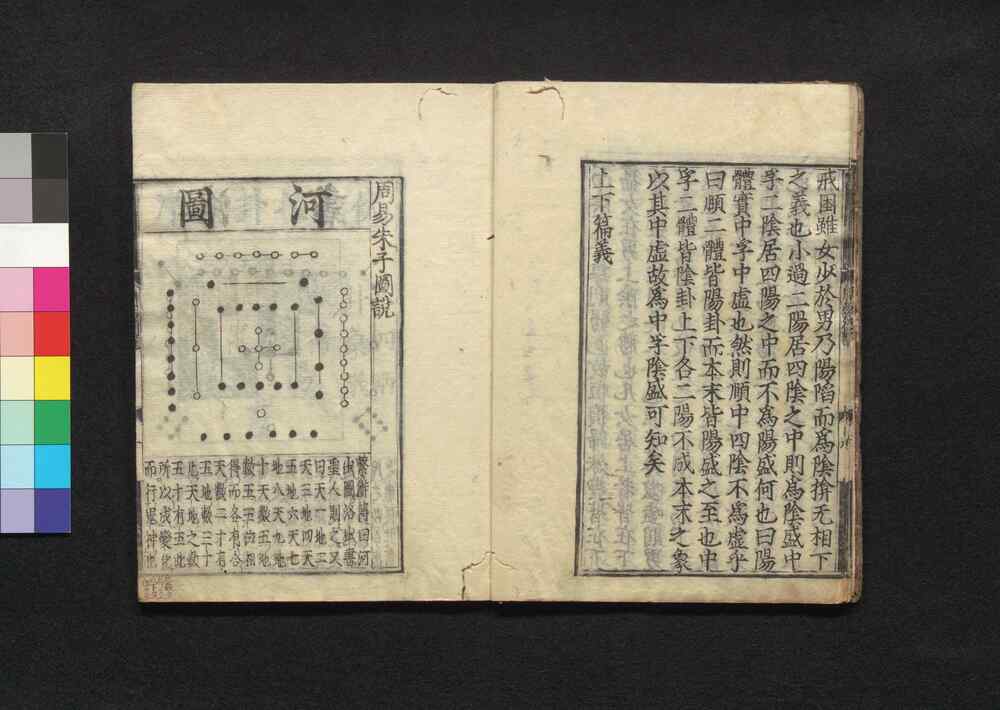 戒困雖女少於男乃陽陷而爲陰揜无相下
之義也小過二陽居四陰之中則爲陰盛中
孚二陰居四陽之中而不爲陽盛何也曰陽
體實中孚中虛也然則頤中四陰不爲虛乎
曰頤二體皆陽卦而本末皆陽盛之至也中
孚二體皆陰卦上下各二陽不成本末之象
以其中虛故爲中孚陰盛可知矣
上下篇義
周易朱子圖說
河圖
繫辭傳曰河
出圖洛出書
聖人則之又
曰天一地二
天三地四天
五地六天七
地八天九地
十天數五地
數五五位相
得而各有合
天數二十有
五地數三十
凡天地之數
五十有五此
所以成變化
而行鬼神也